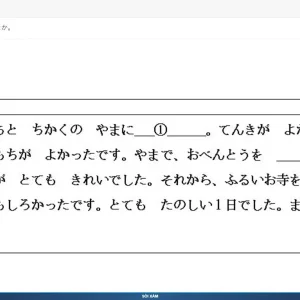 か。
と ちかくの やまに___①______。てんきが よか
ちが よかったです。やまで、おべんとうを ___
が とても きれいでした。それから、ふるいお寺を
しろかったです。とても たのしい１日でした。ま
SÔI ĐÀM